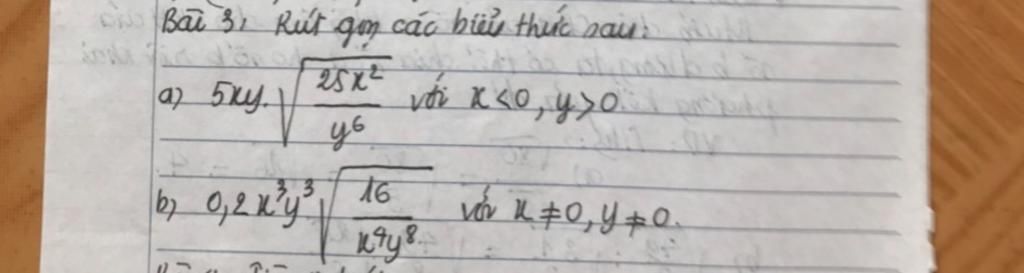 Bài 3, Rút gọn các biểu thức sau:
a) 5xy.√(25x²/y⁶) với x<0, y>0
b) 0,2x³y³√(16/x⁴y⁸) với x≠0, y≠0.